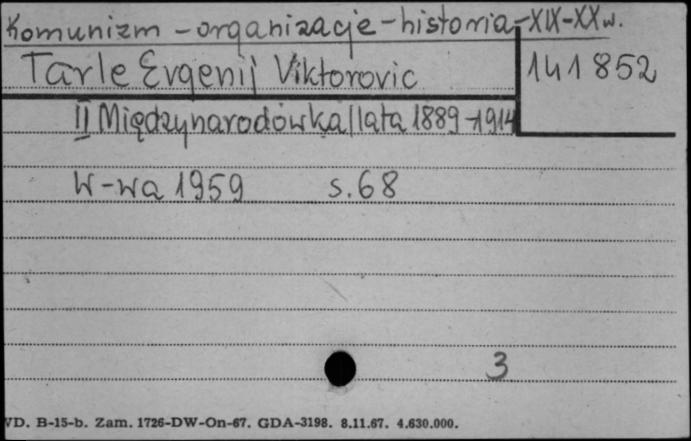 Komunizm - organizacje - historia - XIX-XX w.
Tarle Evgenij Viktorovic
141852
II Międzynarodówka /lata 1889-1914
W-wa 1959 s. 68
3
VD. B-15-b. Zam. 1726-DW-On-67. GDA-3198. 8.11.67. 4.630.000.